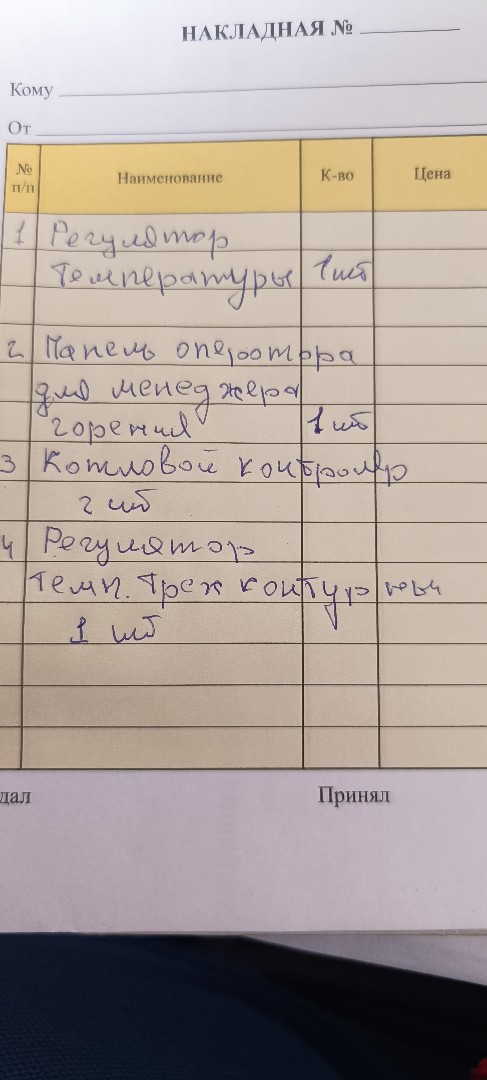 НАКЛАДНАЯ №
Кому
От
№ п/п Наименование К-во Цена
1 Регулятор
температуры 1 шт
2 Панель оператора
для менеджера
горения 1 шт
3 Котловой контролер
2 шт
4 Регулятор
темп. трех контурный
1 шт
дал Принял